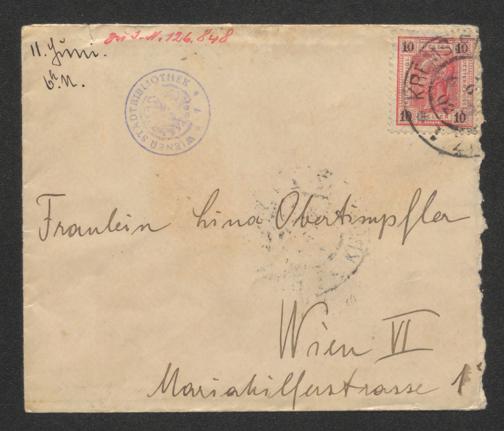 11. Juni.
6h N.
zu I. N. 126.848
WIENER STADTBIBLIOTHEK
10 10
10 10
KREMS
Fraulein Lina Obertimpfler
Wien VI
Mariahilferstrasse 1